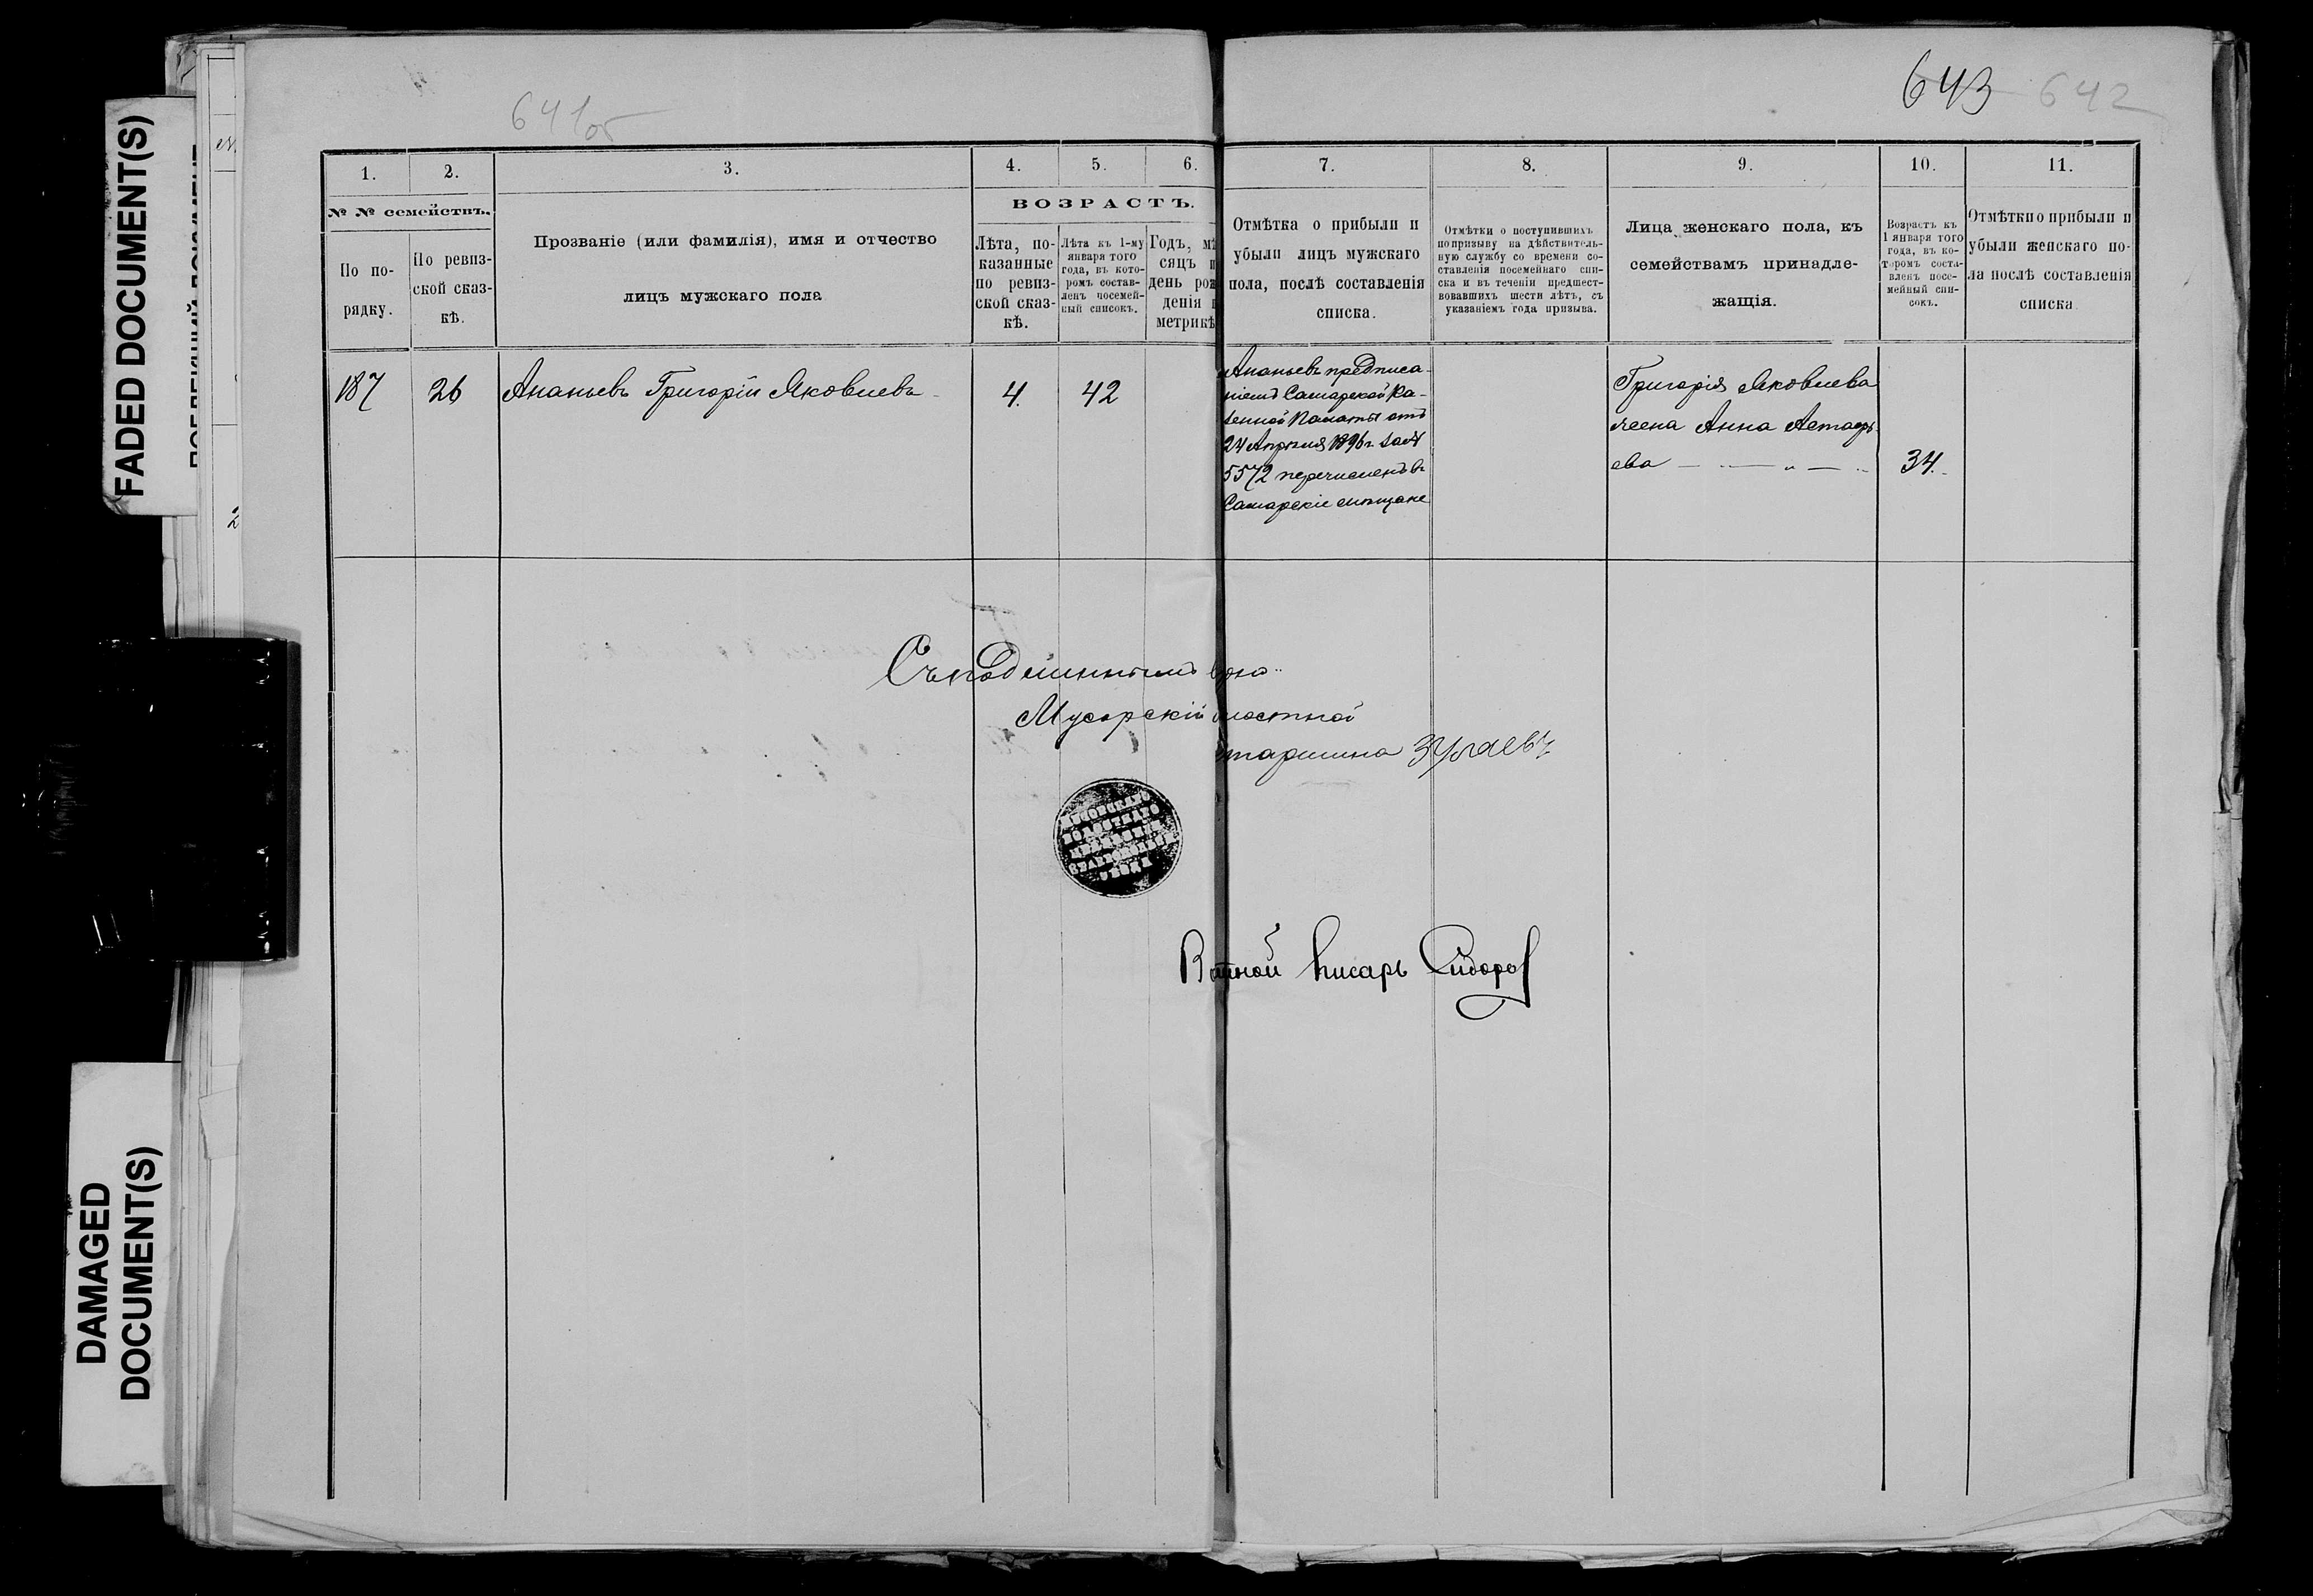 641об
643 642
FADED DOCUMENT(S)
DAMAGED
DOCUMENT(S)
1. 2. 3. 4. 5. 6. 7. 8. 9. 10. 11.
№ № семействъ.
По по-
рядку.
По ревиз-
ской сказ-
кѣ.
Прозваніе (или фамилія), имя и отчество
лицъ мужскаго пола
ВОЗРАСТЪ.
Лѣта, по-
казанные
по ревиз-
ской сказ-
кѣ.
Лѣта къ 1-му
января того
года, въ кото-
ромъ состав-
ленъ посемей-
ный списокъ.
Годъ, мѣ
сяцъ и
день рож
денія
метрикѣ
Отмѣтка о прибыли и
убыли лицъ мужскаго
пола, послѣ составленія
списка.
Отмѣтки о поступившихъ
по призыву на дѣйствитель-
ную службу со времени со-
ставленія посемейнаго спи-
ска и въ теченіи предшест-
вовавшихъ шести лѣтъ, съ
указаніемъ года призыва.
Лица женскаго пола, къ
семействамъ принадле-
жащія.
Возрастъ къ
1 января того
года, въ ко-
торомъ соста-
вленъ посе-
мейный спи-
сокъ.
Отмѣтки о прибыли и
убыли женскаго по-
ла послѣ составленія
списка.
187 26 Ананьевъ Григорій Яковлевъ 4. 42
Ананьевъ предписа-
ніемъ Самарской Ка-
зенной Палаты отъ
24 Апрѣля 1896 г. за №
5572 перечисленъ въ
Самарскіе мѣщане
Григорія Яковлева
жена Анна Астафь
ева 34.
Съ подлиннымъ вѣрно:
Мусорскій
старшина
писарь Сидоров